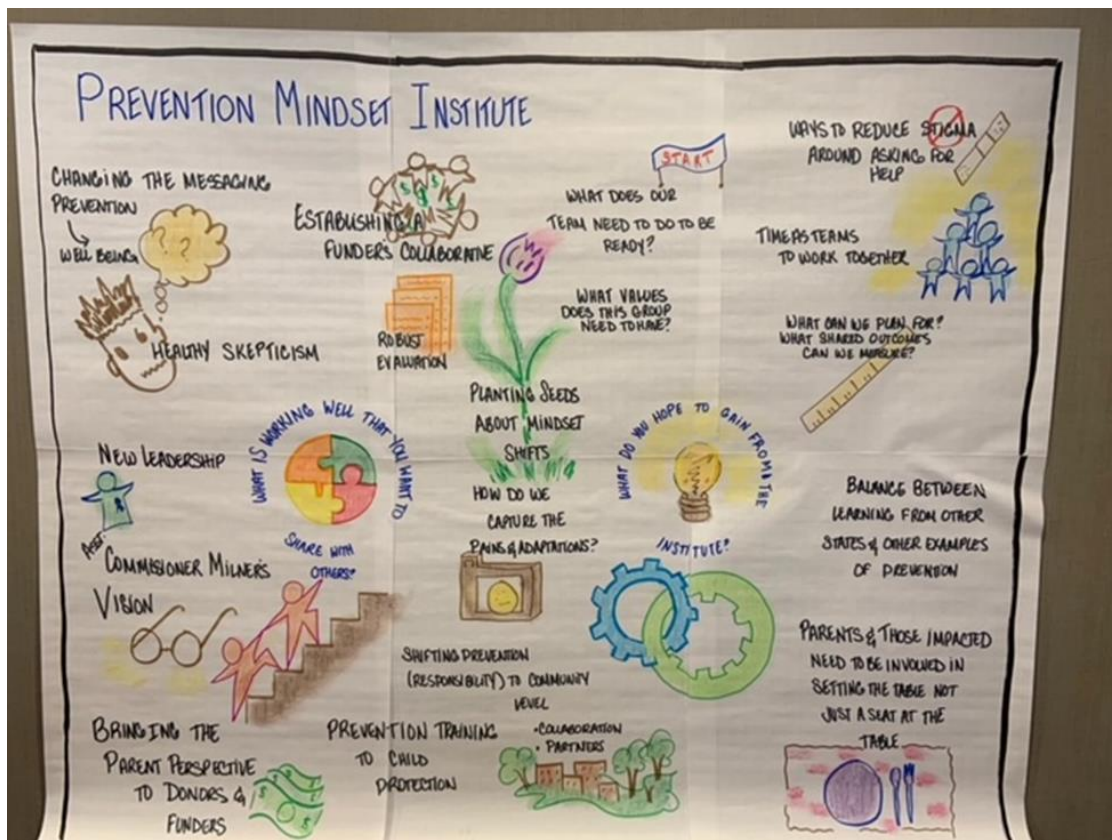 PREVENTION MINDSET INSTITUTE
CHANGING THE MESSAGING
PREVENTION
WELL BEING
? ?
HEALTHY SKEPTICISM
ESTABLISHING A
FUNDER'S COLLABORATIVE
$ $
ROBUST
EVALUATION
START
WHAT DOES OUR
TEAM NEED TO DO TO BE
READY?
WHAT VALUES
DOES THIS GROUP
NEED TO HAVE?
WAYS TO REDUCE STIGMA
AROUND ASKING FOR
HELP
TIME AS TEAMS
TO WORK TOGETHER
WHAT CAN WE PLAN FOR?
WHAT SHARED OUTCOMES
CAN WE MEASURE?
PLANTING SEEDS
ABOUT MINDSET
SHIFTS
NEW LEADERSHIP
ASST.
COMMISIONER MILNER'S
VISION
WHAT IS WORKING WELL THAT YOU WANT TO
SHARE WITH
OTHERS?
HOW DO WE
CAPTURE THE
PAINS & ADAPTATIONS?
WHAT DO YOU HOPE TO GAIN FROM THE
INSTITUTE?
BALANCE BETWEEN
LEARNING FROM OTHER
STATES & OTHER EXAMPLES
OF PREVENTION
SHIFTING PREVENTION
(RESPONSIBILITY) TO COMMUNITY
LEVEL
• COLLABORATION
• PARTNERS
PARENTS & THOSE IMPACTED
NEED TO BE INVOLVED IN
SETTING THE TABLE NOT
JUST A SEAT AT THE
TABLE
BRINGING THE
PARENT PERSPECTIVE
TO DONORS &
FUNDERS
$ $
PREVENTION TRAINING
TO CHILD
PROTECTION